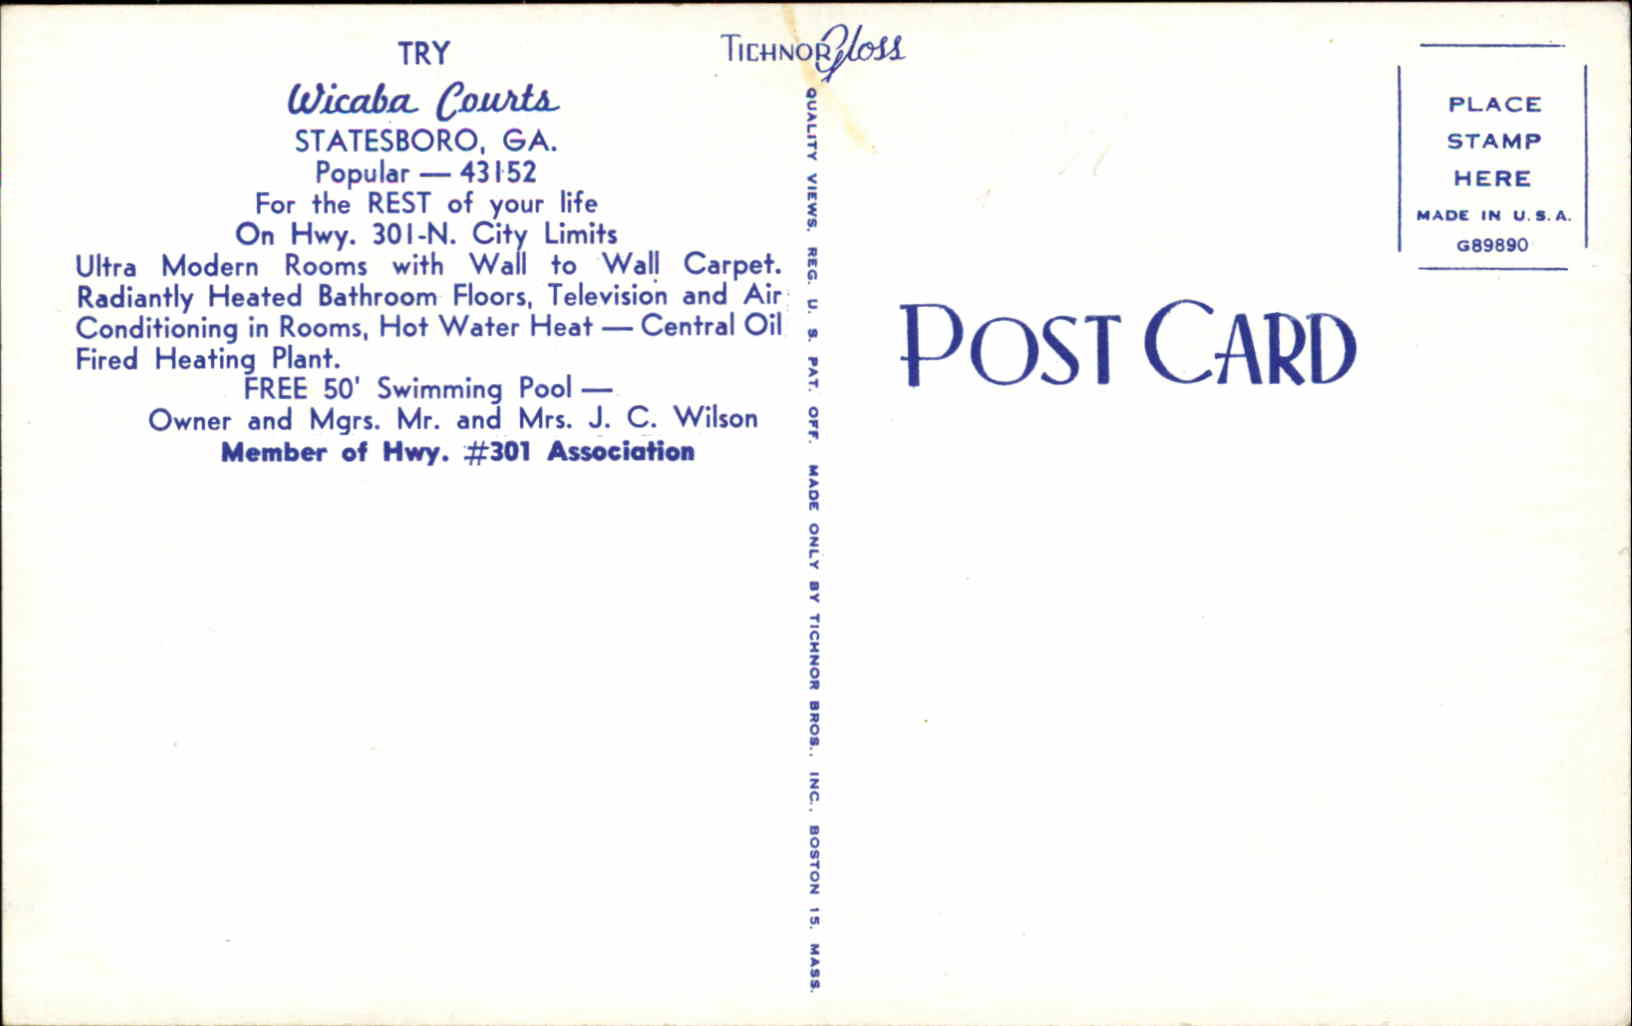 TRY
Wicaba Courts
STATESBORO, GA.
Popular — 43152
For the REST of your life
On Hwy. 301-N. City Limits
Ultra Modern Rooms with Wall to Wall Carpet.
Radiantly Heated Bathroom Floors, Television and Air
Conditioning in Rooms, Hot Water Heat — Central Oil
Fired Heating Plant.
FREE 50' Swimming Pool —
Owner and Mgrs. Mr. and Mrs. J. C. Wilson
Member of Hwy. #301 Association
TICHNOR Gloss
QUALITY VIEWS. REG. U. S. PAT. OFF. MADE ONLY BY TICHNOR BROS., INC., BOSTON 15, MASS.
POST CARD
PLACE
STAMP
HERE
MADE IN U.S.A.
G89890